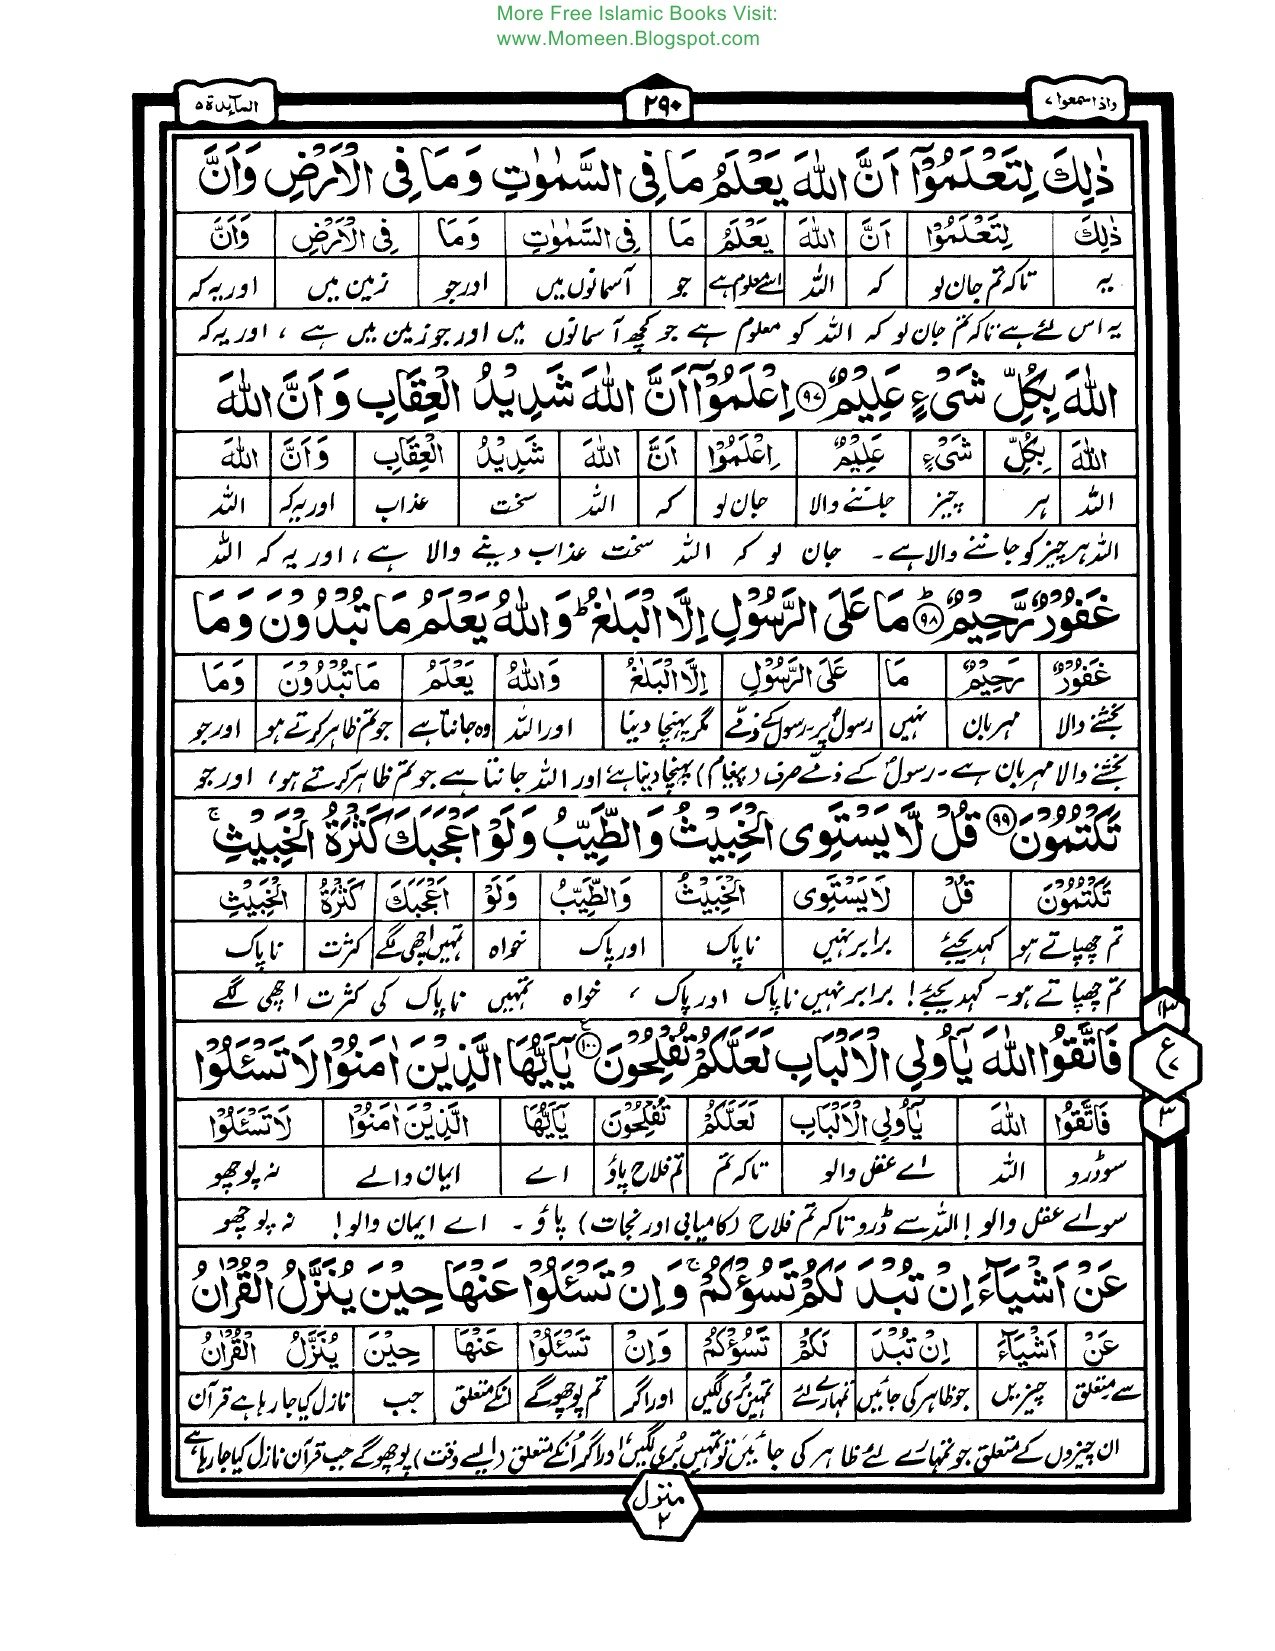 More Free Islamic Books Visit:
www.Momeen.Blogspot.com
واذاسمعوا ۷
۲۹۰
المآئدة ۵
ذٰلِكَ لِتَعْلَمُوْٓا اَنَّ اللّٰهَ يَعْلَمُ مَا فِى السَّمٰوٰتِ وَمَا فِى الْاَرْضِ وَاَنَّ
ذٰلِكَ لِتَعْلَمُوْٓا اَنَّ اللّٰهَ يَعْلَمُ مَا فِى السَّمٰوٰتِ وَمَا فِى الْاَرْضِ وَاَنَّ
یہ تاکہ تم جان لو کہ اللہ اسے معلوم ہے جو آسمانوں میں اورجو زمین میں اور یہ کہ
یہ اس لئے ہے تاکہ تم جان لو کہ اللہ کو معلوم ہے جو کچھ آسمانوں میں اور جو زمین میں ہے ، اور یہ کہ
اللّٰهَ بِكُلِّ شَىْءٍ عَلِيْمٌ ۹۷ اِعْلَمُوْٓا اَنَّ اللّٰهَ شَدِيْدُ الْعِقَابِ وَاَنَّ اللّٰهَ
اللّٰهَ بِكُلِّ شَىْءٍ عَلِيْمٌ اِعْلَمُوْٓا اَنَّ اللّٰهَ شَدِيْدُ الْعِقَابِ وَاَنَّ اللّٰهَ
اللہ ہر چیز جاننے والا جان لو کہ اللہ سخت عذاب اور یہ کہ اللہ
اللہ ہر چیز کو جاننے والا ہے۔ جان لو کہ اللہ سخت عذاب دینے والا ہے ، اور یہ کہ اللہ
غَفُوْرٌ رَّحِيْمٌ ۹۸ مَا عَلَى الرَّسُوْلِ اِلَّا الْبَلٰغُ ؕ وَاللّٰهُ يَعْلَمُ مَا تُبْدُوْنَ وَمَا
غَفُوْرٌ رَّحِيْمٌ مَا عَلَى الرَّسُوْلِ اِلَّا الْبَلٰغُ وَاللّٰهُ يَعْلَمُ مَا تُبْدُوْنَ وَمَا
بخشنے والا مہربان نہیں رسول پر۔ رسول کے ذمے مگر پہنچا دینا اور اللہ وہ جانتا ہے جو تم ظاہر کرتے ہو اورجو
بخشنے والا مہربان ہے۔ رسول کے ذمے صرف (پیغام) پہنچا دینا ہے اور اللہ جانتا ہے جو تم ظاہر کرتے ہو، اور جو
تَكْتُمُوْنَ ۹۹ قُلْ لَّا يَسْتَوِى الْخَبِيْثُ وَالطَّيِّبُ وَلَوْ اَعْجَبَكَ كَثْرَةُ الْخَبِيْثِ ۚ
تَكْتُمُوْنَ قُلْ لَا يَسْتَوِى الْخَبِيْثُ وَالطَّيِّبُ وَلَوْ اَعْجَبَكَ كَثْرَةُ الْخَبِيْثِ
تم چھپاتے ہو کہدیجئے برابر نہیں ناپاک اور پاک خواہ تمہیں اچھی لگے کثرت ناپاک
تم چھپاتے ہو۔ کہدیجئے! برابر نہیں ناپاک اور پاک ، خواہ تمہیں ناپاک کی کثرت اچھی لگے
فَاتَّقُوا اللّٰهَ يٰٓاُولِى الْاَلْبَابِ لَعَلَّكُمْ تُفْلِحُوْنَ ۱۰۰ يٰٓاَيُّهَا الَّذِيْنَ اٰمَنُوْا لَا تَسْئَلُوْا
۱۳
ع ۷
۳
فَاتَّقُوا اللّٰهَ يٰٓاُولِى الْاَلْبَابِ لَعَلَّكُمْ تُفْلِحُوْنَ يٰٓاَيُّهَا الَّذِيْنَ اٰمَنُوْا لَا تَسْئَلُوْا
سو ڈرو اللہ اے عقل والو تاکہ تم تم فلاح پاؤ اے ایمان والے نہ پوچھو
سو اے عقل والو! اللہ سے ڈرو تاکہ تم فلاح (کامیابی اور نجات) پاؤ۔ اے ایمان والو! نہ پوچھو
عَنْ اَشْيَآءَ اِنْ تُبْدَ لَكُمْ تَسُؤْكُمْ ۚ وَاِنْ تَسْئَلُوْا عَنْهَا حِيْنَ يُنَزَّلُ الْقُرْاٰنُ
عَنْ اَشْيَآءَ اِنْ تُبْدَ لَكُمْ تَسُؤْكُمْ وَاِنْ تَسْئَلُوْا عَنْهَا حِيْنَ يُنَزَّلُ الْقُرْاٰنُ
سے متعلق چیزیں جو ظاہر کی جائیں تمہارے لئے تمہیں بری لگیں اوراگر تم پوچھو گے انکے متعلق جب نازل کیا جا رہا ہے قرآن
ان چیزوں کے متعلق جو تمہارے لئے ظاہر کی جائیں تو تمہیں بری لگیں، اور اگر انکے متعلق (ایسے وقت) پوچھو گے جب قرآن نازل کیا جا رہا ہے
منزل ۲